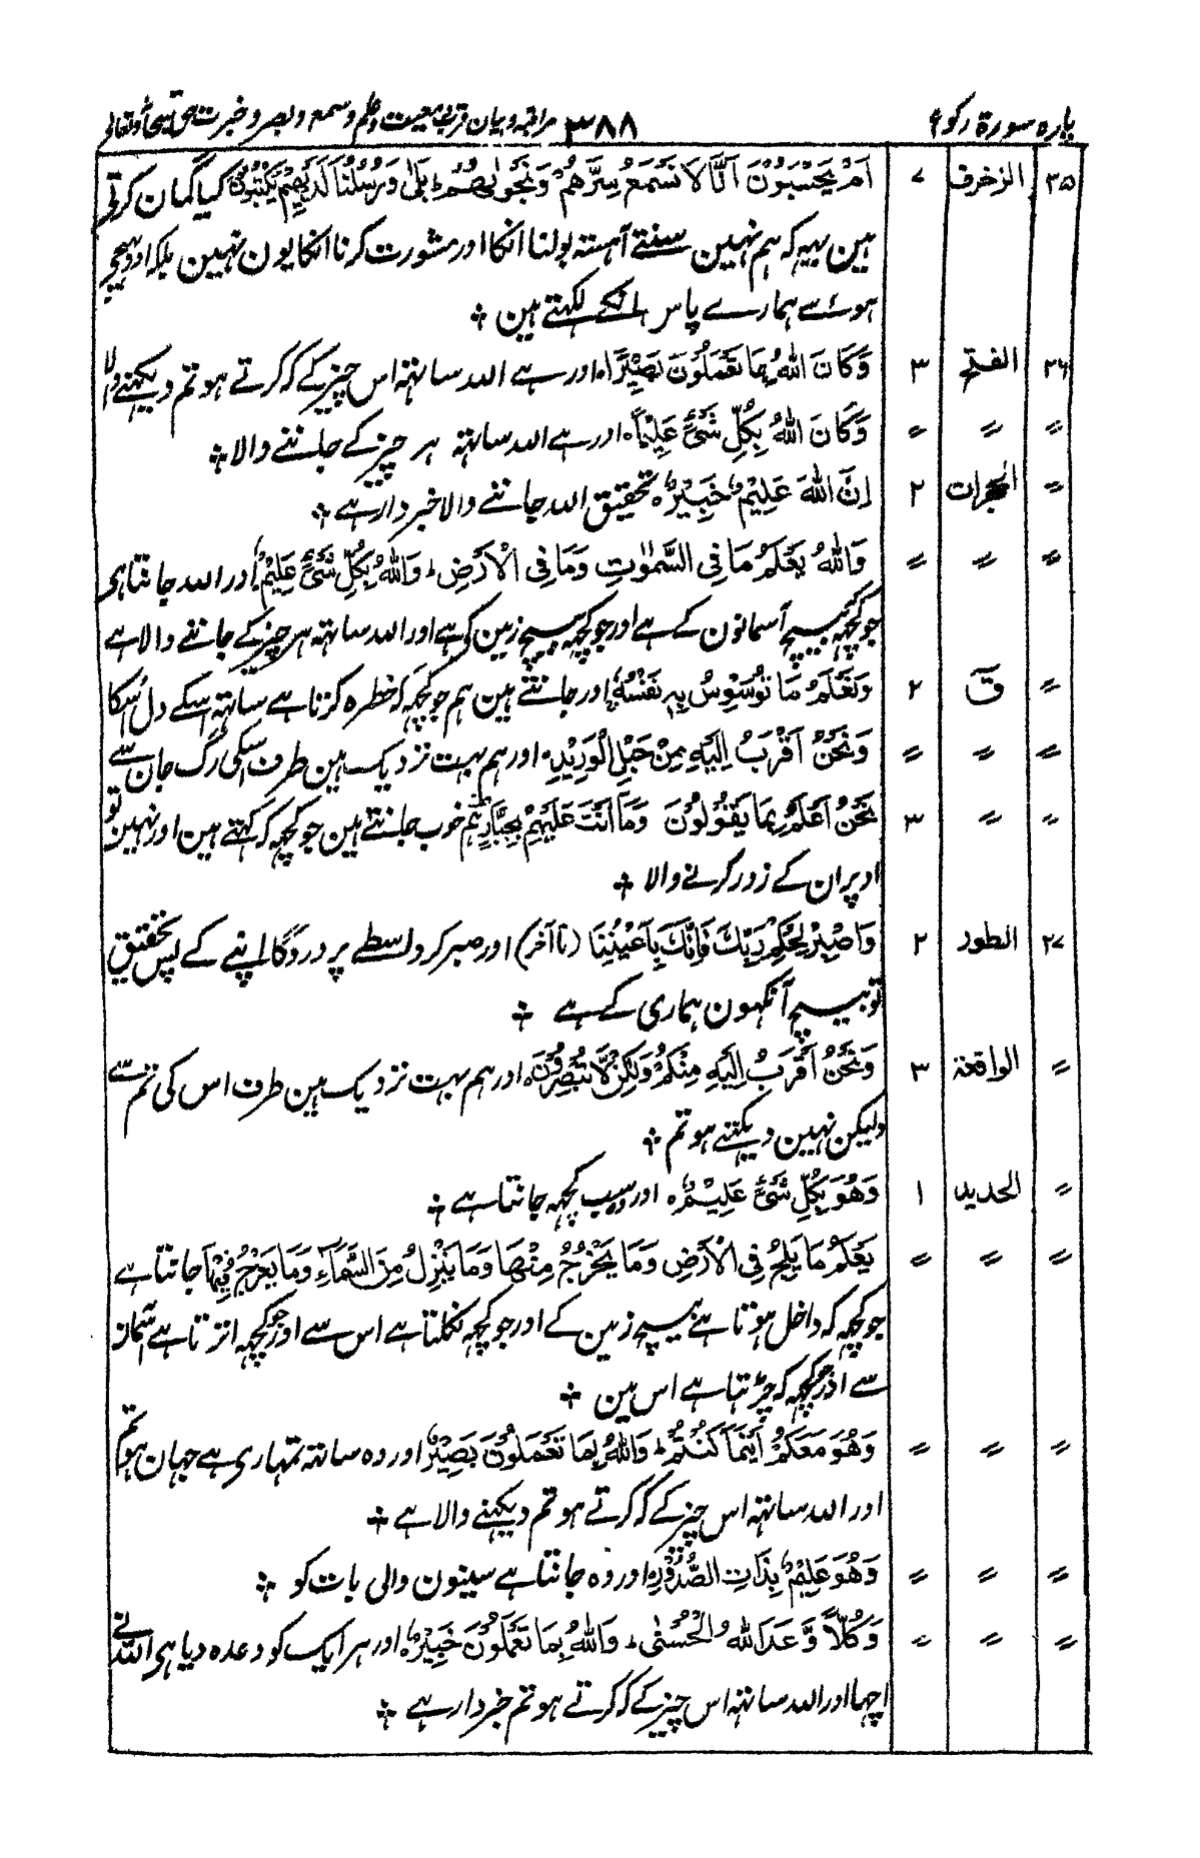 پارہ سورۃ رکوع ۳۸۸ مراقبہ و بیان قرب معیت و علم و سمع و بصر و خبرت حق سبحانہ وتعالی
۲۵ الزخرف ۷ اَمْ يَحْسَبُوْنَ اَنَّا لَا نَسْمَعُ سِرَّهُمْ وَنَجْوٰىهُمْ ؕ بَلٰى وَرُسُلُنَا لَدَيْهِمْ يَكْتُبُوْنَ کیا گمان کرتی
ہین یہہ کہ ہم نہین سنتے آہستہ بولنا انکا اور مشورت کرنا انکا یون نہین بلکہ اور بھیجے
ہوئے ہمارے پاس انکے لکہتے ہین ❖
۲۶ الفتح ۳ وَكَانَ اللهُ بِمَا تَعْمَلُوْنَ بَصِيْرًا ہ اور ہے اللہ ساتہہ اس چیز کے کہ کرتے ہو تم دیکہنے والا
〃 〃 〃 وَكَانَ اللهُ بِكُلِّ شَيْءٍ عَلِيْمًا ہ اور ہے اللہ ساتہہ ہر چیز کے جاننے والا ❖
〃 الحجرات ۲ اِنَّ اللهَ عَلِيْمٌ خَبِيْرٌ ہ تحقیق اللہ جاننے والا خبردار ہے ❖
〃 〃 〃 وَاللهُ يَعْلَمُ مَا فِى السَّمٰوٰتِ وَمَا فِى الْاَرْضِ ؕ وَاللهُ بِكُلِّ شَيْءٍ عَلِيْمٌ اور اللہ جانتا ہی
جو کچہہ بیچ آسمانون کے ہے اور جو کچہہ بیچ زمین کی ہے اور اللہ ساتہہ ہر چیز کے جاننے والا ہے
〃 قٓ ۲ وَنَعْلَمُ مَا تُوَسْوِسُ بِهٖ نَفْسُهٗ اور جانتے ہین ہم جو کچہہ کہ خطرہ کرتا ہے ساتہہ اسکے دل اسکا
〃 〃 〃 وَنَحْنُ اَقْرَبُ اِلَيْهِ مِنْ حَبْلِ الْوَرِيْدِ ہ اور ہم بہت نزدیک ہین طرف اسکی رگ جان سے
〃 〃 ۳ نَحْنُ اَعْلَمُ بِمَا يَقُوْلُوْنَ وَمَا اَنْتَ عَلَيْهِمْ بِجَبَّارٍ ہم خوب جانتے ہین جو کچہہ کہ کہتے ہین اور نہین تو
اوپر ان کے زور کرنے والا ❖
۲۷ الطور ۲ وَاصْبِرْ لِحُكْمِ رَبِّكَ فَاِنَّكَ بِاَعْيُنِنَا (تا آخر) اور صبر کر واسطے پروردگار اپنے کے پس تحقیق
تو بیچ آنکہون ہماری کے ہے ❖
〃 الواقعۃ ۳ وَنَحْنُ اَقْرَبُ اِلَيْهِ مِنْكُمْ وَلٰكِنْ لَّا تُبْصِرُوْنَ ہ اور ہم بہت نزدیک ہین طرف اس کی تم سے
ولیکن نہین دیکہتے ہو تم ❖
〃 الحدید ۱ وَهُوَ بِكُلِّ شَيْءٍ عَلِيْمٌ ہ اور وہ سب کچہہ جانتا ہے ❖
〃 〃 〃 يَعْلَمُ مَا يَلِجُ فِى الْاَرْضِ وَمَا يَخْرُجُ مِنْهَا وَمَا يَنْزِلُ مِنَ السَّمَآءِ وَمَا يَعْرُجُ فِيْهَا جانتا ہے
جو کچہہ کہ داخل ہوتا ہے بیچ زمین کے اور جو کچہہ نکلتا ہے اس سے اور جو کچہہ اترتا ہے آسمان
سے اور جو کچہہ کہ چڑہتا ہے اس مین ❖
〃 〃 〃 وَهُوَ مَعَكُمْ اَيْنَمَا كُنْتُمْ ؕ وَاللهُ بِمَا تَعْمَلُوْنَ بَصِيْرٌ اور وہ ساتہہ تمہاری ہے جہان ہو تم
اور اللہ ساتہہ اس چیز کے کہ کرتے ہو تم دیکہنے والا ہے ❖
〃 〃 〃 وَهُوَ عَلِيْمٌ بِذَاتِ الصُّدُوْرِ ہ اور وہ جانتا ہے سینون والی بات کو ❖
〃 〃 〃 وَكُلًّا وَّعَدَ اللهُ الْحُسْنٰى ؕ وَاللهُ بِمَا تَعْمَلُوْنَ خَبِيْرٌ ہ اور ہر ایک کو وعدہ دیا ہی اللہ نے
اچہا اور اللہ ساتہہ اس چیز کے کہ کرتے ہو تم خبردار ہے ❖